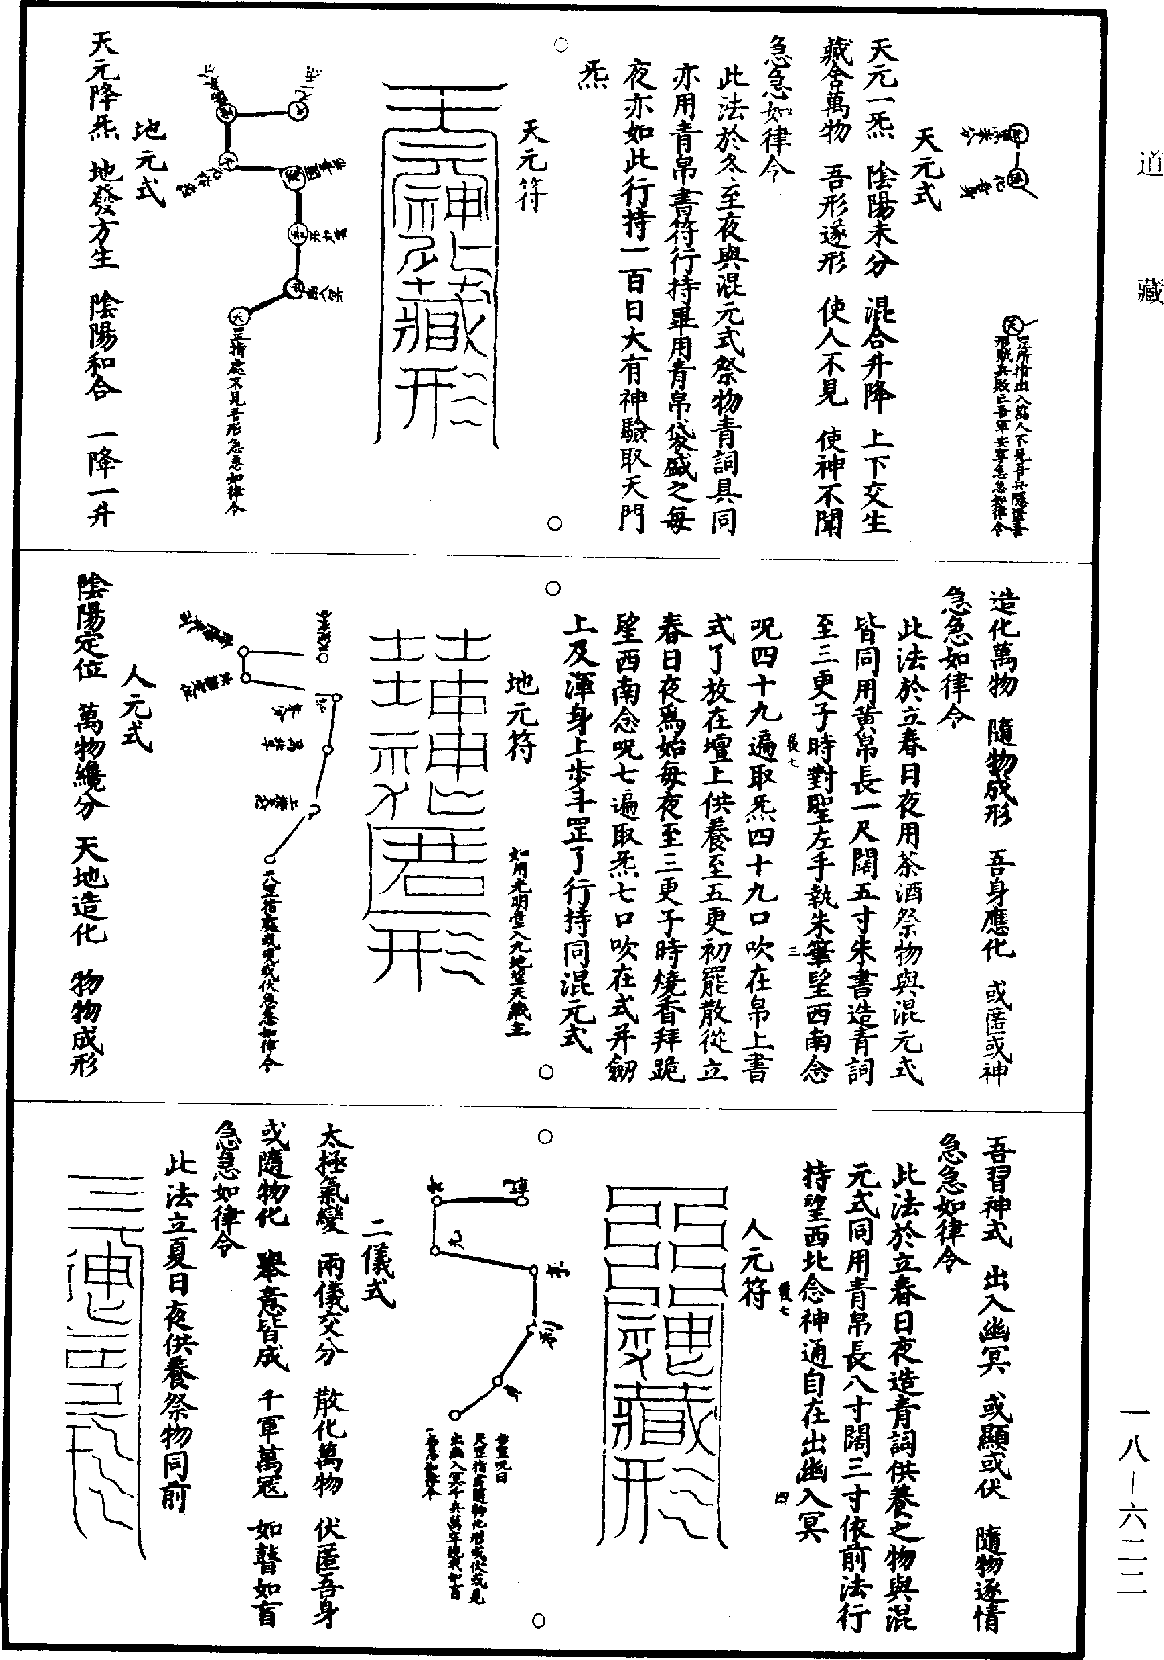 道藏
天元式
天元一炁　陰陽未分　混合升降　上下交生
藏舍萬物　吾形遂形　使人不見　使神不聞
急急如律令
此法於冬至夜與混元式祭物青詞具同
亦用青帛書符行持畢用青帛袋盛之每
夜亦如此行持一百日大有神驗取天門
炁
天元符
罡指處不見吾形急急如律令
地元式
天元降炁　地發方生　陰陽和合　一降一升
造化萬物　隨物成形　吾身應化　或隱或神
急急如律令
此法於立春日夜用茶酒祭物與混元式
皆同用黃帛長一尺闊五寸朱書造青詞
至三更子時對聖左手執朱筆望西南念
呪四十九遍取炁四十九口吹在帛上書
式了放在壇上供養至五更初罷散從立
春日夜為始每夜至三更子時燒香拜跪
望西南念呪七遍取炁七口吹在式并劒
上及渾身上步斗罡了行持同混元式
地元符
人元式
陰陽定位　萬物纔分　天地造化　物物成形
吾習神式　出入幽冥　或顯或伏　隨物逐情
急急如律令
此法於立春日夜造青詞供養之物與混
元式同用青帛長八寸闊三寸依前法行
持望西北念神通自在出幽入冥
人元符
二儀式
太極氣變　兩儀交分　散化萬物　伏匿吾身
或隨物化　舉意皆成　千軍萬寇　如瞽如盲
急急如律令
此法立夏日夜供養祭物同前
一八—六二二